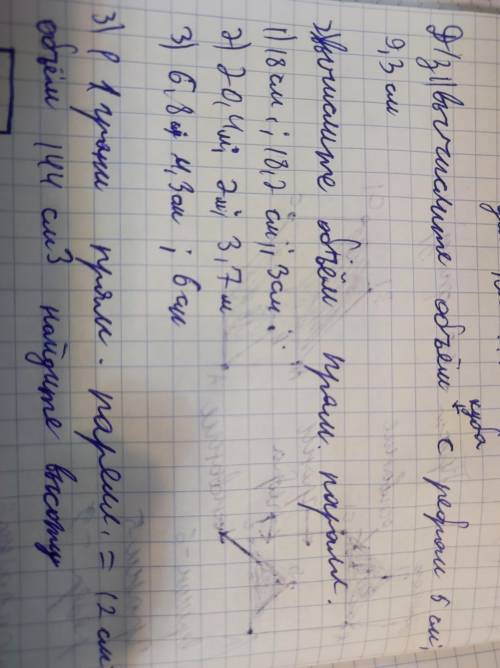 Д/з 1) вычислите объём куба с ребром 5 см,
9,3 см
2) Вычислите объём прям. паралл.
1) 18 см; 18,2 см; 3 см;
2) 20,4 м; 2 м; 3,7 м
3) 6,8 4,3 см; 6 см
3) Р 1 грани прям. паралл. = 12 см
объём 144 см3 найдите высоту